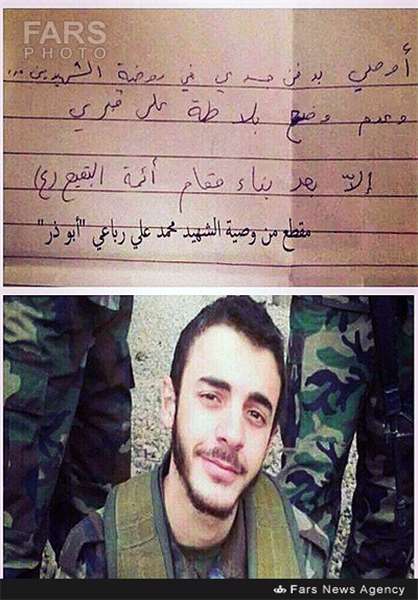 FARS
PHOTO
أوصي بدفن جسدي في روضة الشهيدين ...
وعدم وضع بلاطة على قبري
إلاّ بعد بناء مقام أئمة البقيع (ع)
مقطع من وصية الشهيد محمد علي رباعي "أبو ذر"
Fars News Agency